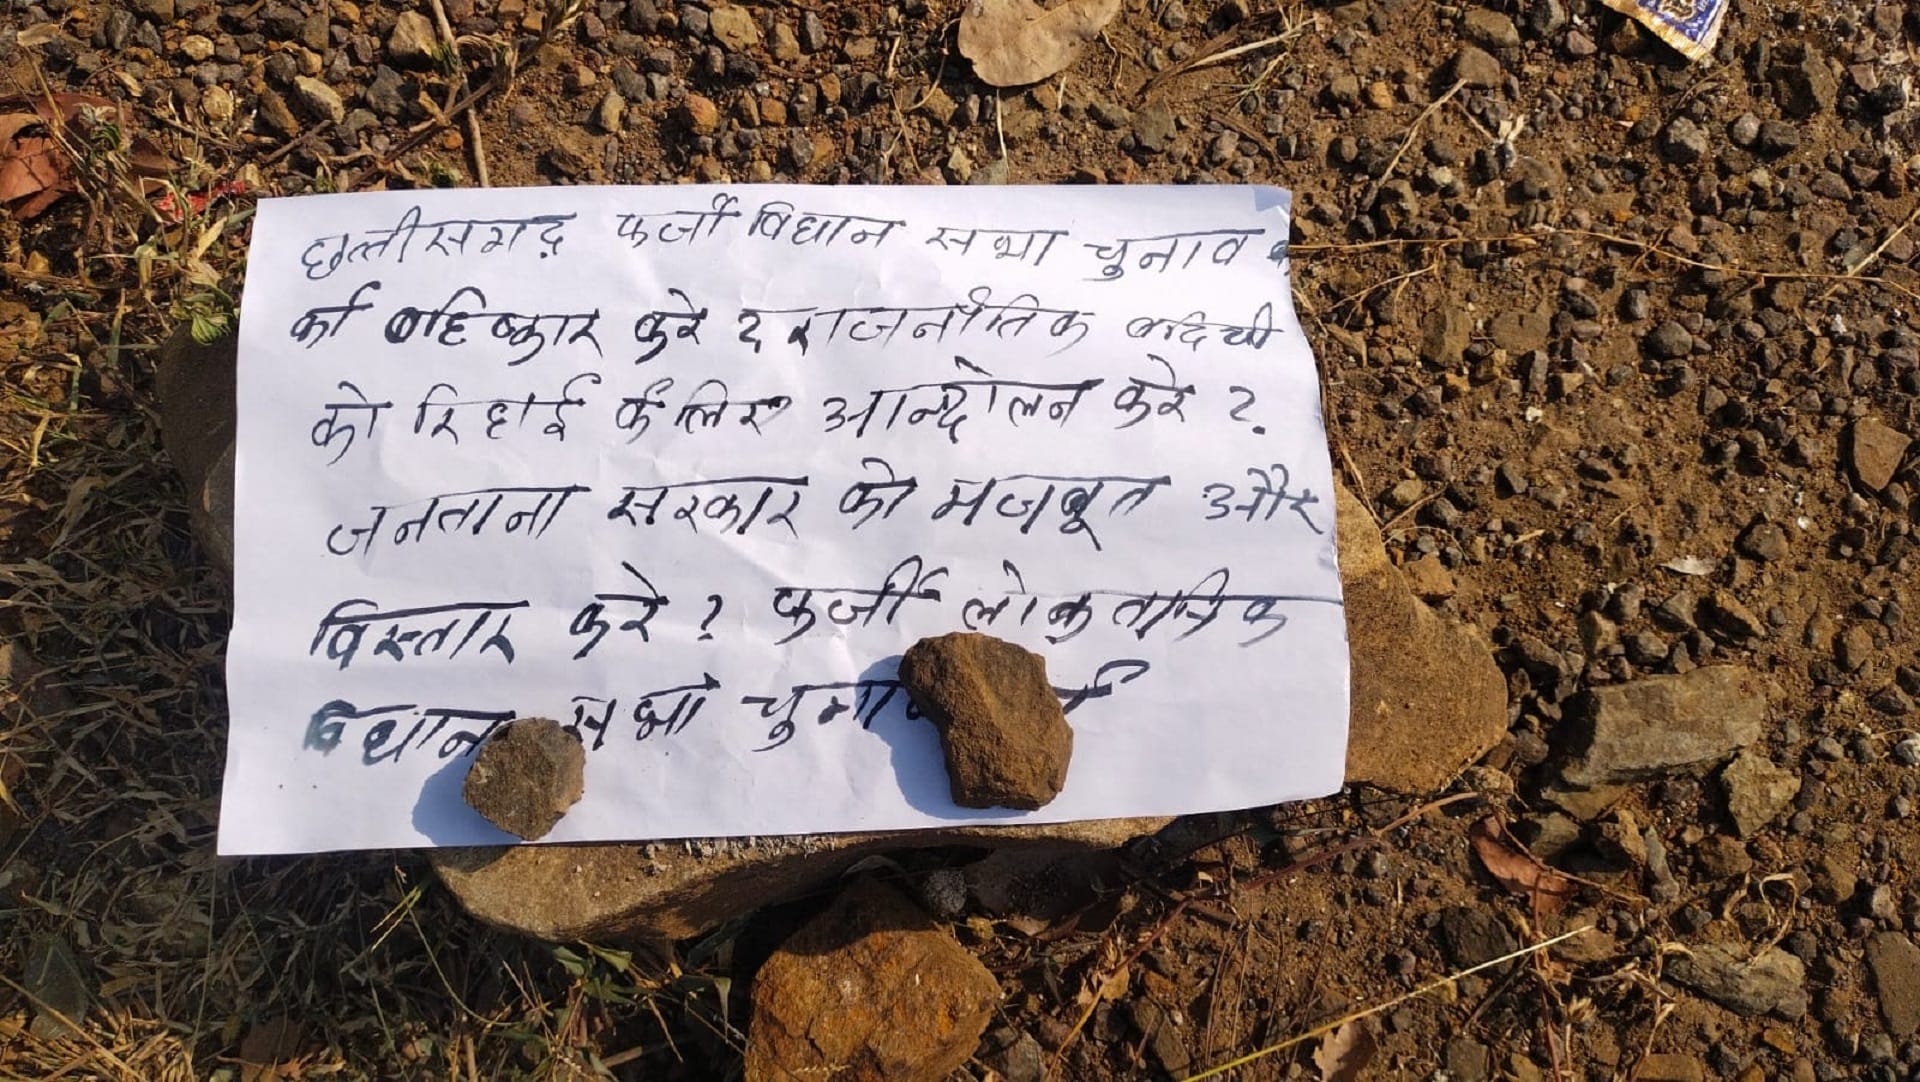 छत्तीसगढ़ फर्जी विधान सभा चुनाव
का बहिष्कार करे ? राजनैतिक बदियी
को रिहाई कंलिए आन्दोलन करे ?
जनताना सरकार को मजबूत और
विस्तार करे ? फर्जी लोकतात्रिक
विधान सभा